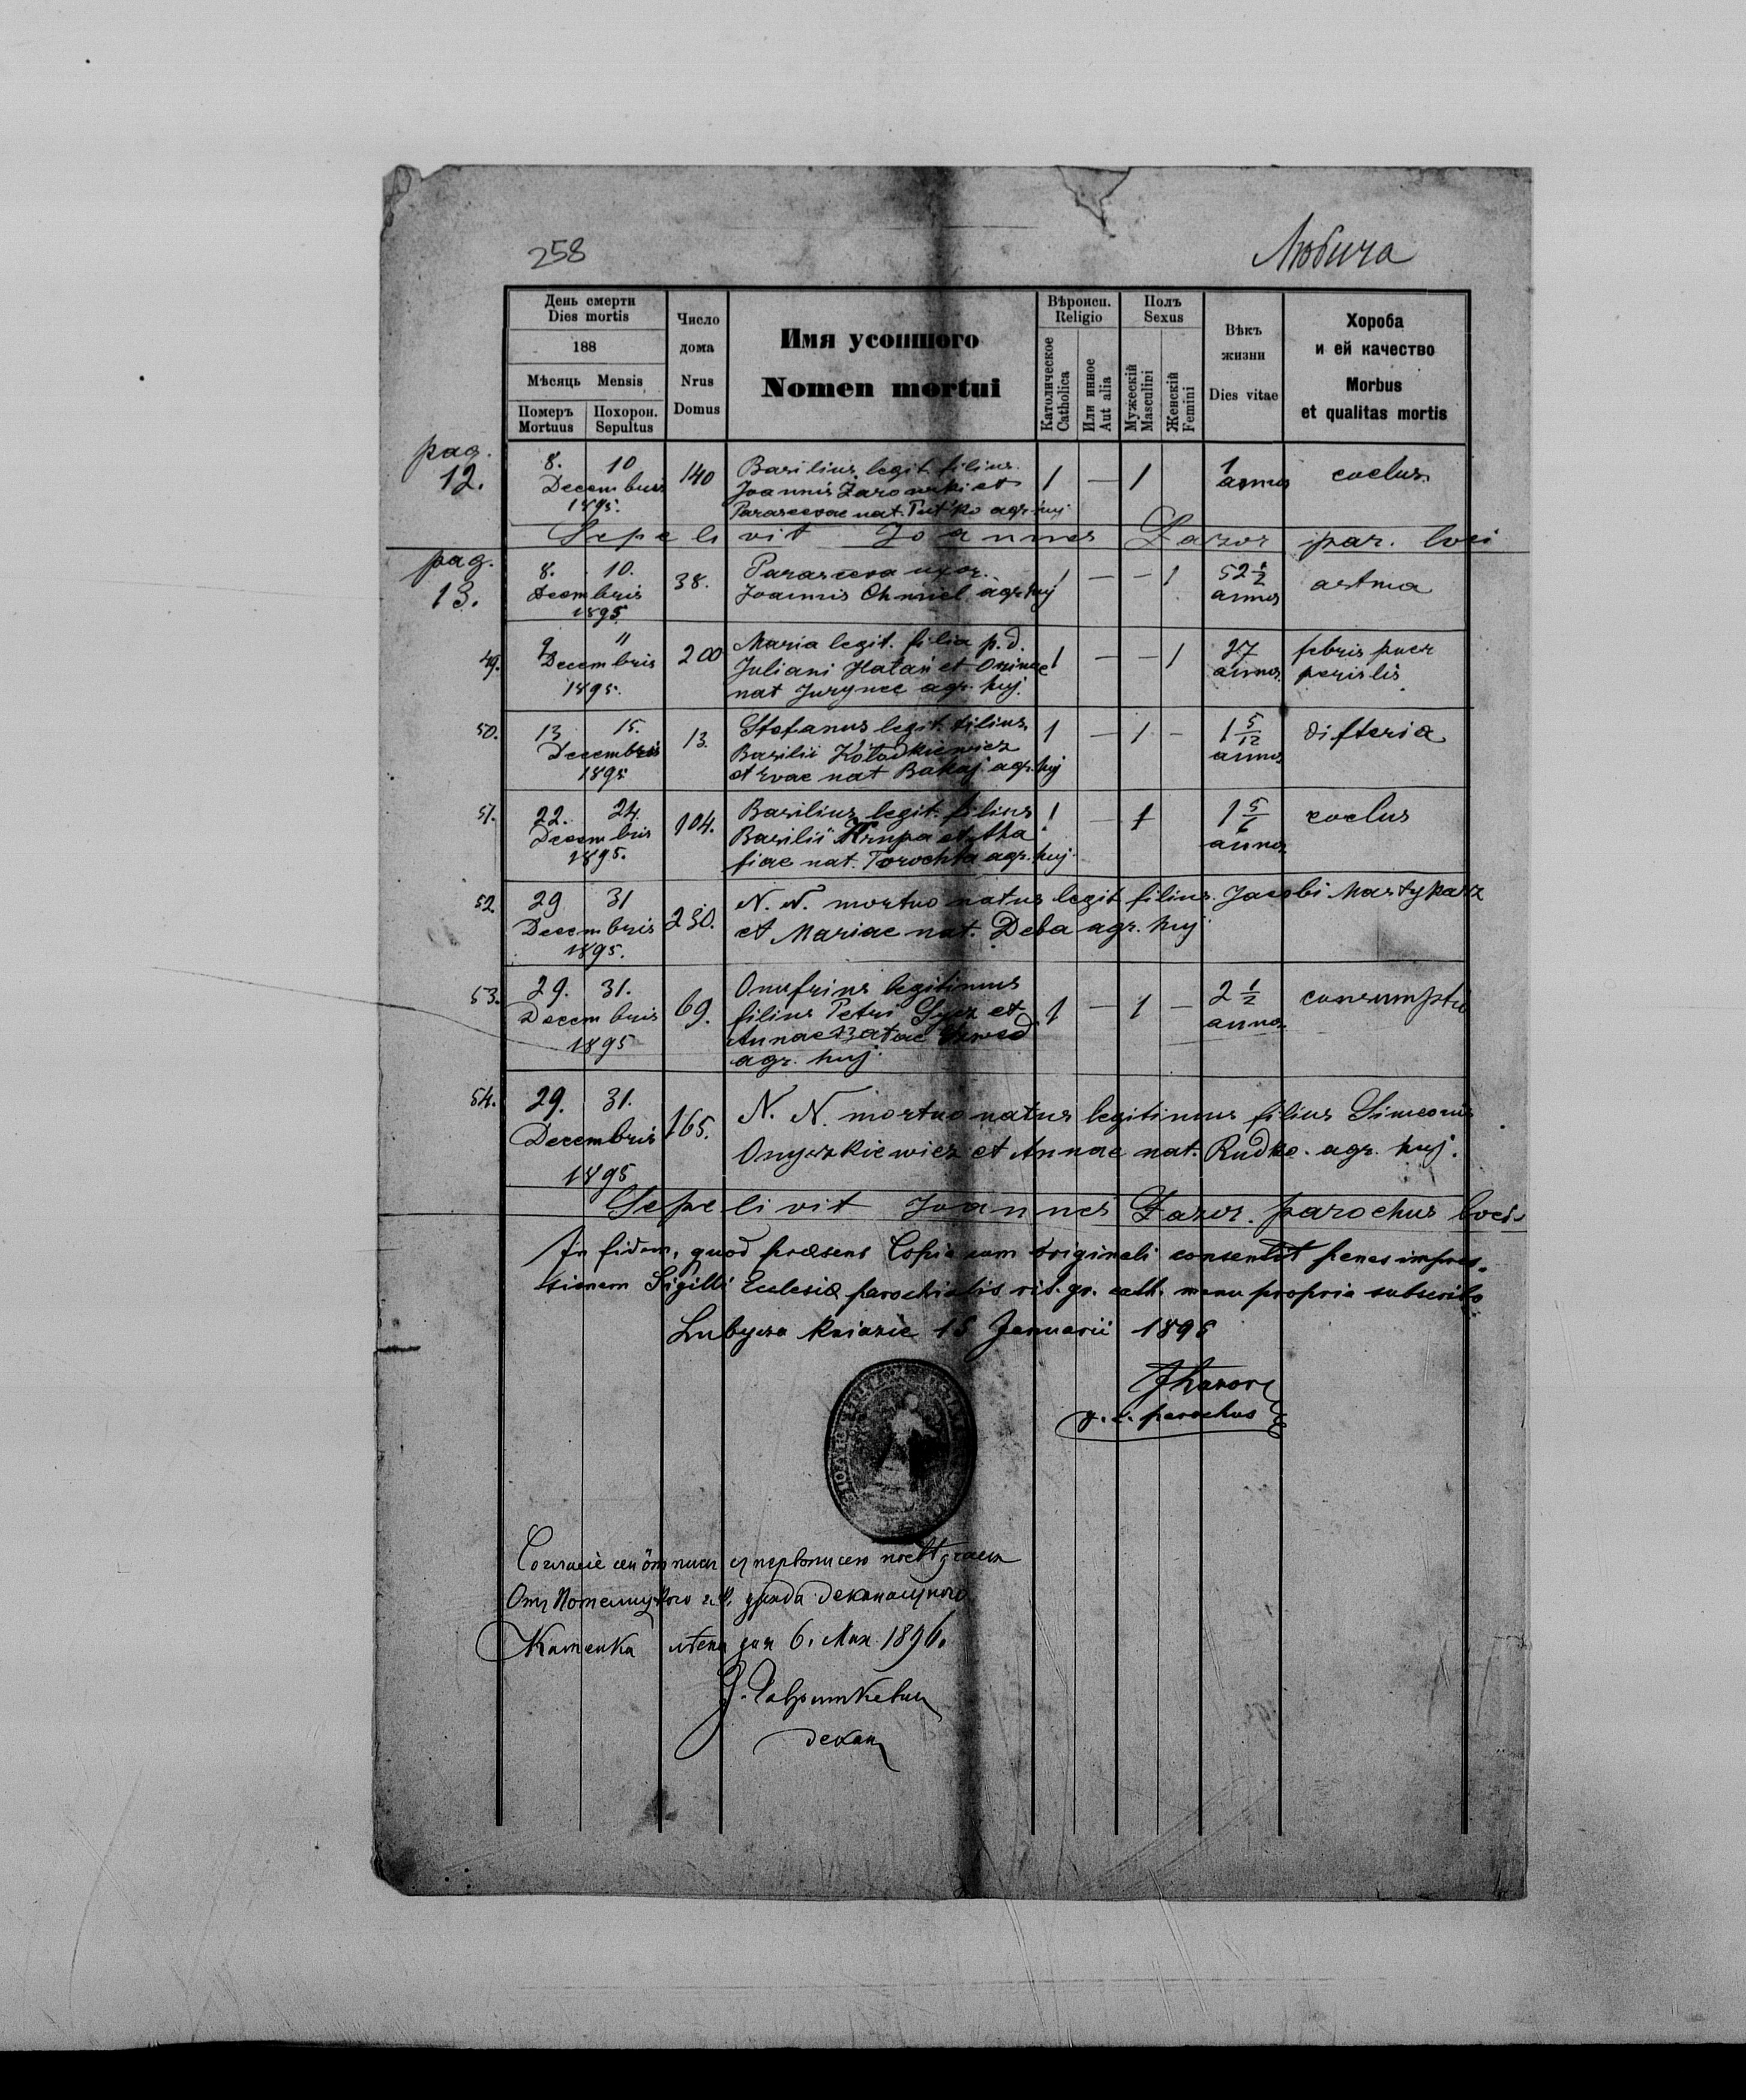 258
Любича
День смерти
Dies mortis
188
Мѣсяць Mensis
Померъ
Mortuus
Похорон.
Sepultus
Число
дома
Nrus
Domus
Имя усопшого
Nomen mortui
Вѣроисп.
Religio
Католическое
Catholica
Или инное
Aut alia
Полъ
Sexus
Мужескій
Masculini
Женскій
Femini
Вѣкъ
жизни
Dies vitae
Хороба
и ей качество
Morbus
et qualitas mortis
pag.
12.
8. 10
Decembris
1895.
140
Basilius legit. filius
Joannis Żarowski et
Parascevae nat. Put'ko agr. huj
1 — 1
1
annus
coclus
Sepelivit Joannes Lazor par. loci
pag.
13.
8. 10.
Decembris
1895
38.
Parasceva uxor.
Joannis Chmiel agr. huj
1 — — 1
52 1/2
annos
astma
49.
9 11
Decembris
1895.
200
Maria legit. filia p. d.
Juliani Hałań et
nat Jurynec agr. huj.
1 — — 1
27
annos
febris puer
peristis
50.
13 15.
Decembris
1895
13.
Stefanus legit. filius
Basilii Kołodkiewicz
et Evae nat Bakaj agr. huj
1 — 1 —
1 5/12
annos
difteria
51.
22. 24.
Decembris
1895.
104.
Basilius legit. filius
Basilii Krupa et Aha
fiae nat. Torochta agr. huj.
1 — 1
1 5/6
annos
coclus
52.
29 31
Decembris
1895.
230.
N. N. mortuo natus legit filius Jacobi Martyparz
et Mariae nat. Deba agr. huj
53.
29. 31.
Decembris
1895
69.
Onufrius legitimus
filius Petri et
Annae
agr. huj.
1 — 1 —
2 1/2
annos
consumptio
54.
29. 31.
Decembris
1895
165.
N. N. mortuo natus legitimus filius Simeonis
Onyszkiewicz et Annae nat. Rudko. agr. huj.
Sepelivit Joannes Lazor. parochus loci
In fidem, quod præsens Copia cum originali consentit penes impres-
sionem Sigilli Ecclesiæ parochialis rit. gr. cath. manu propria subscribo
Lubycza kniazie 15 Januarii 1896
JLazor
g. c. parochus
декан. 6. Мая 1896.
Каменка
декан